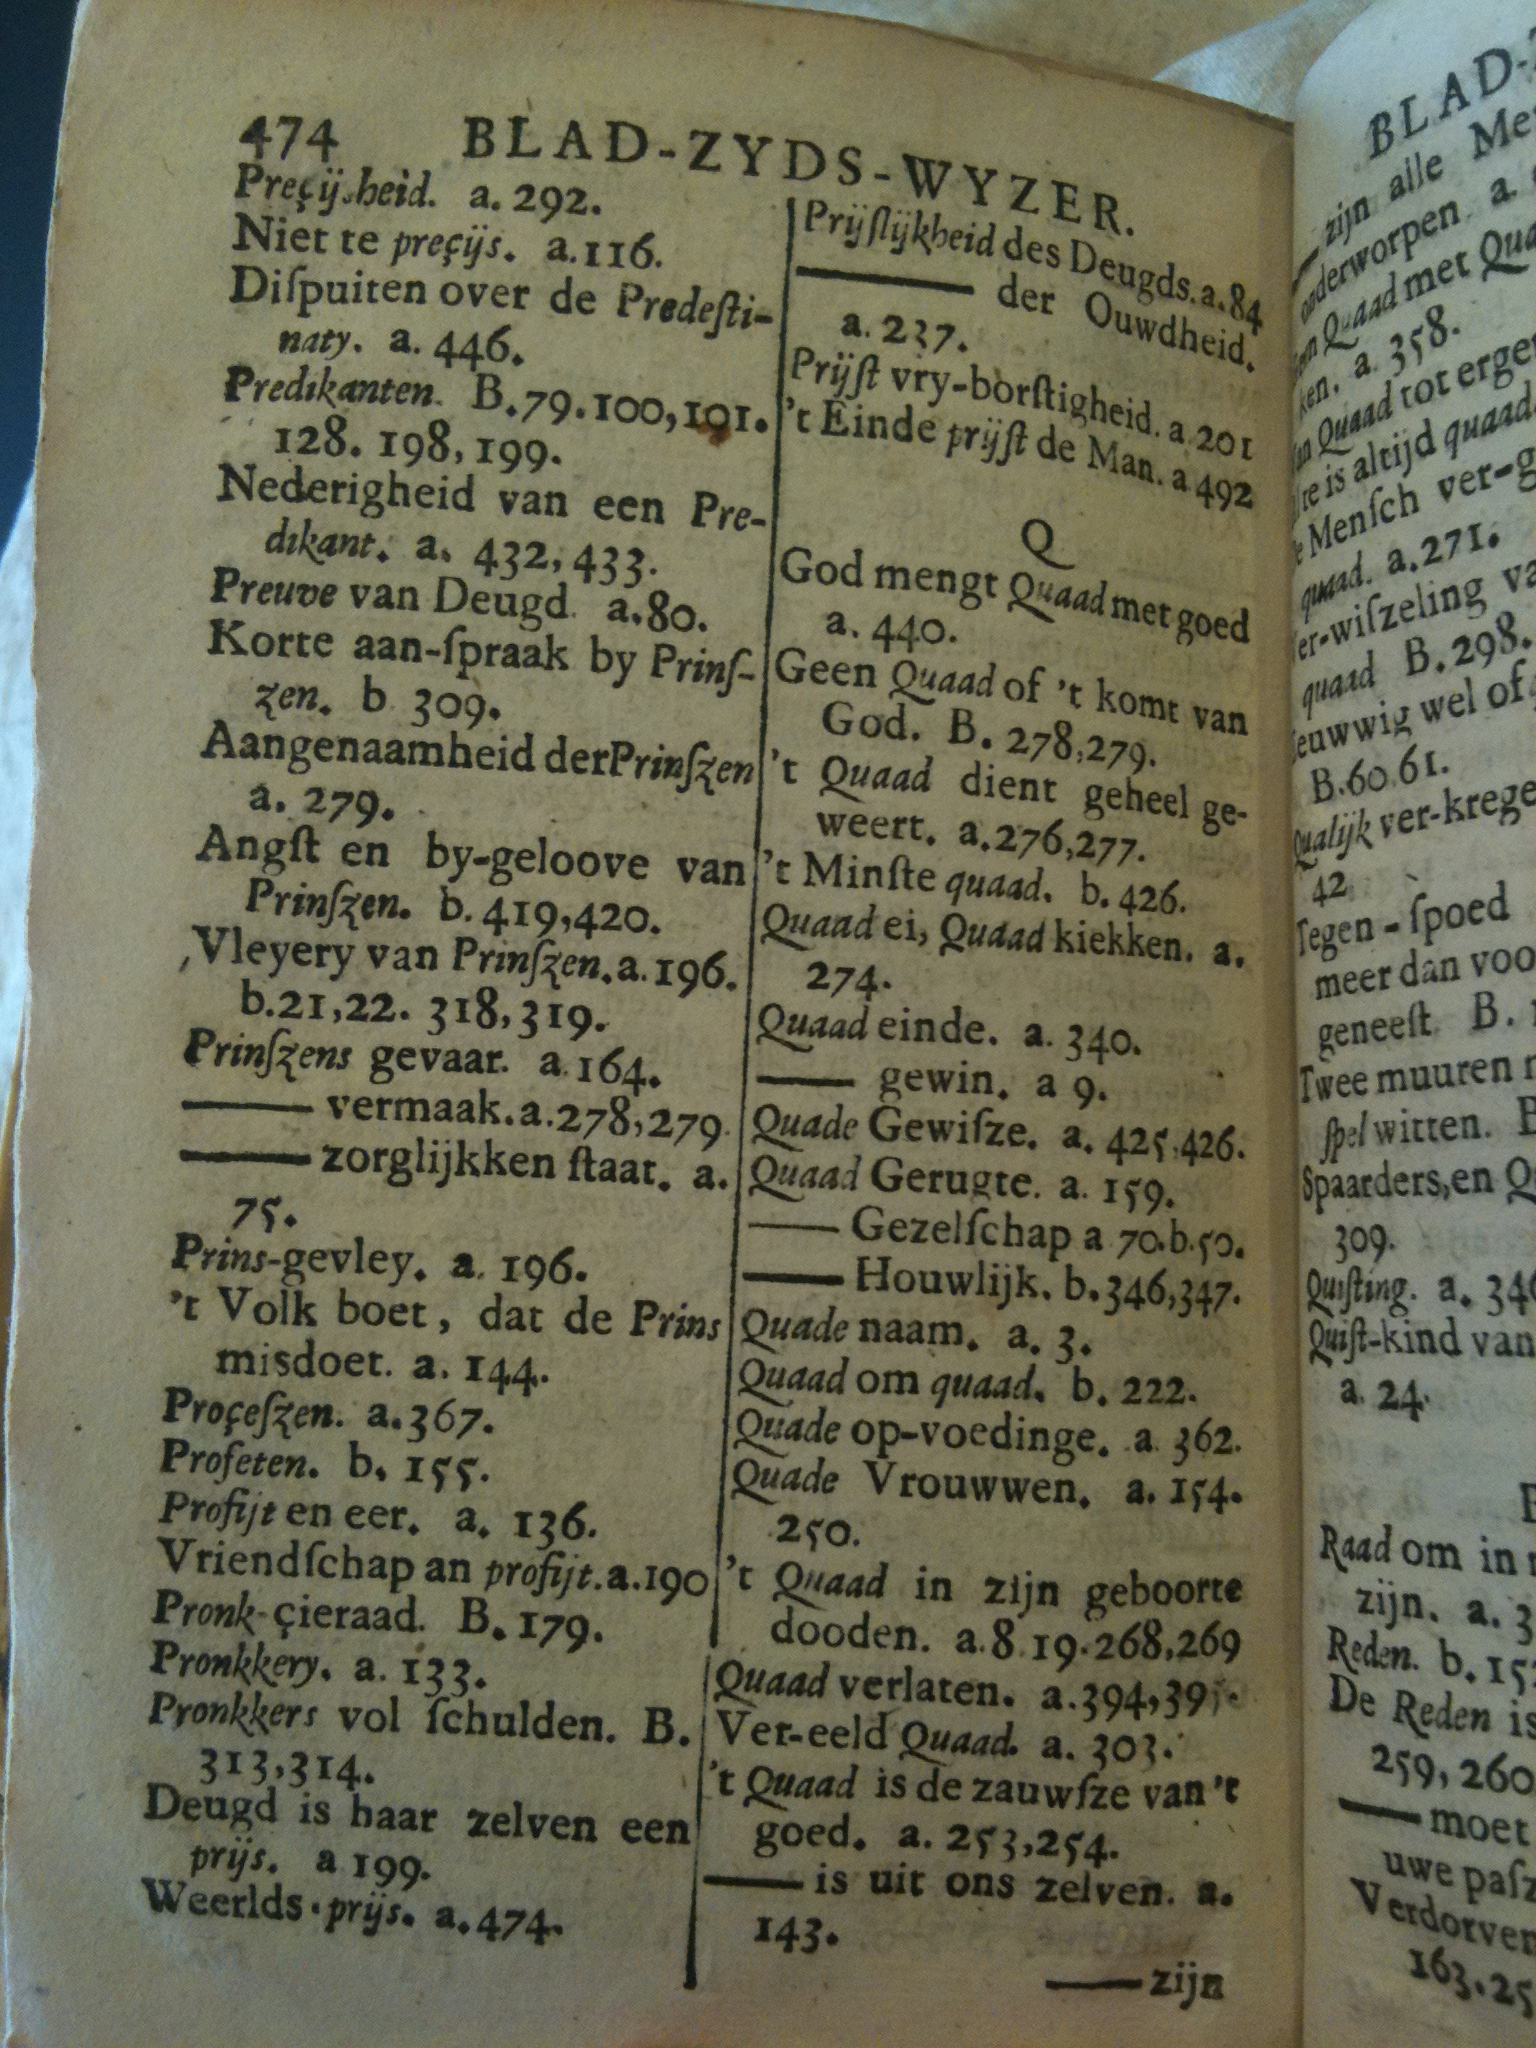 474 BLAD-ZYDS-WYZER.
Preçijsheid. a. 292.
Niet te preçijs. a.116.
Diſpuiten over de Predeſti-
naty. a. 446.
Predikanten. B.79.100,101.
128. 198,199.
Nederigheid van een Pre-
dikant. a. 432,433.
Preuve van Deugd. a.80.
Korte aan-ſpraak by Prinſ-
zen. b 309.
Aangenaamheid der Prinſzen
a. 279.
Angſt en by-geloove van
Prinſzen. b. 419,420.
Vleyery van Prinſzen. a. 196.
b.21,22. 318,319.
Prinſzens gevaar. a.164.
—— vermaak. a.278,279.
—— zorglijkken ſtaat. a.
75.
Prins-gevley. a. 196.
't Volk boet, dat de Prins
misdoet. a. 144.
Proçeſzen. a.367.
Profeten. b. 155.
Profijt en eer. a. 136.
Vriendſchap an profijt. a.190
Pronk-çieraad. B. 179.
Pronkkery. a. 133.
Pronkkers vol ſchulden. B.
313,314.
Deugd is haar zelven een
prijs. a 199.
Weerlds-prijs. a.474.
Prijſlijkheid des Deugds. a.84
—— der Ouwdheid.
a. 237.
Prijſt vry-borſtigheid. a.201
't Einde prijſt de Man. a 492
Q
God mengt Quaad met goed
a. 440.
Geen Quaad of 't komt van
God. B. 278,279.
't Quaad dient geheel ge-
weert. a.276,277.
't Minſte quaad. b. 426.
Quaad ei, Quaad kiekken. a.
274.
Quaad einde. a. 340.
—— gewin. a 9.
Quade Gewiſze. a. 425,426.
Quaad Gerugte. a. 159.
—— Gezelſchap a 70.b.50.
—— Houwlijk. b.346,347.
Quade naam. a. 3.
Quaad om quaad. b. 222.
Quade op-voedinge. a 362.
Quade Vrouwwen. a. 154.
250.
't Quaad in zijn geboorte
dooden. a.8.19.268,269
Quaad verlaten. a.394,395.
Ver-eeld Quaad. a. 303.
't Quaad is de zauwſze van 't
goed. a. 253,254.
—— is uit ons zelven. a.
143.
—— zijn
BLAD-
—— zijn alle
onderworpen. a.
Quaad met
ken. a. 358.
Quaad tot
is altijd quaad.
Menſch
quaad. a.271.
quaad B.298.
wel of
B.60.61.
Qualijk
42
Tegen-ſpoed
meer dan
geneeſt. B.
Twee muuren
witten.
Spaarders, en
309.
Quiſting. a.
Quiſt-kind van
a. 24.
Raad om in
zijn. a.
Reden. b.
De Reden
259, 260
—— moet
uwe